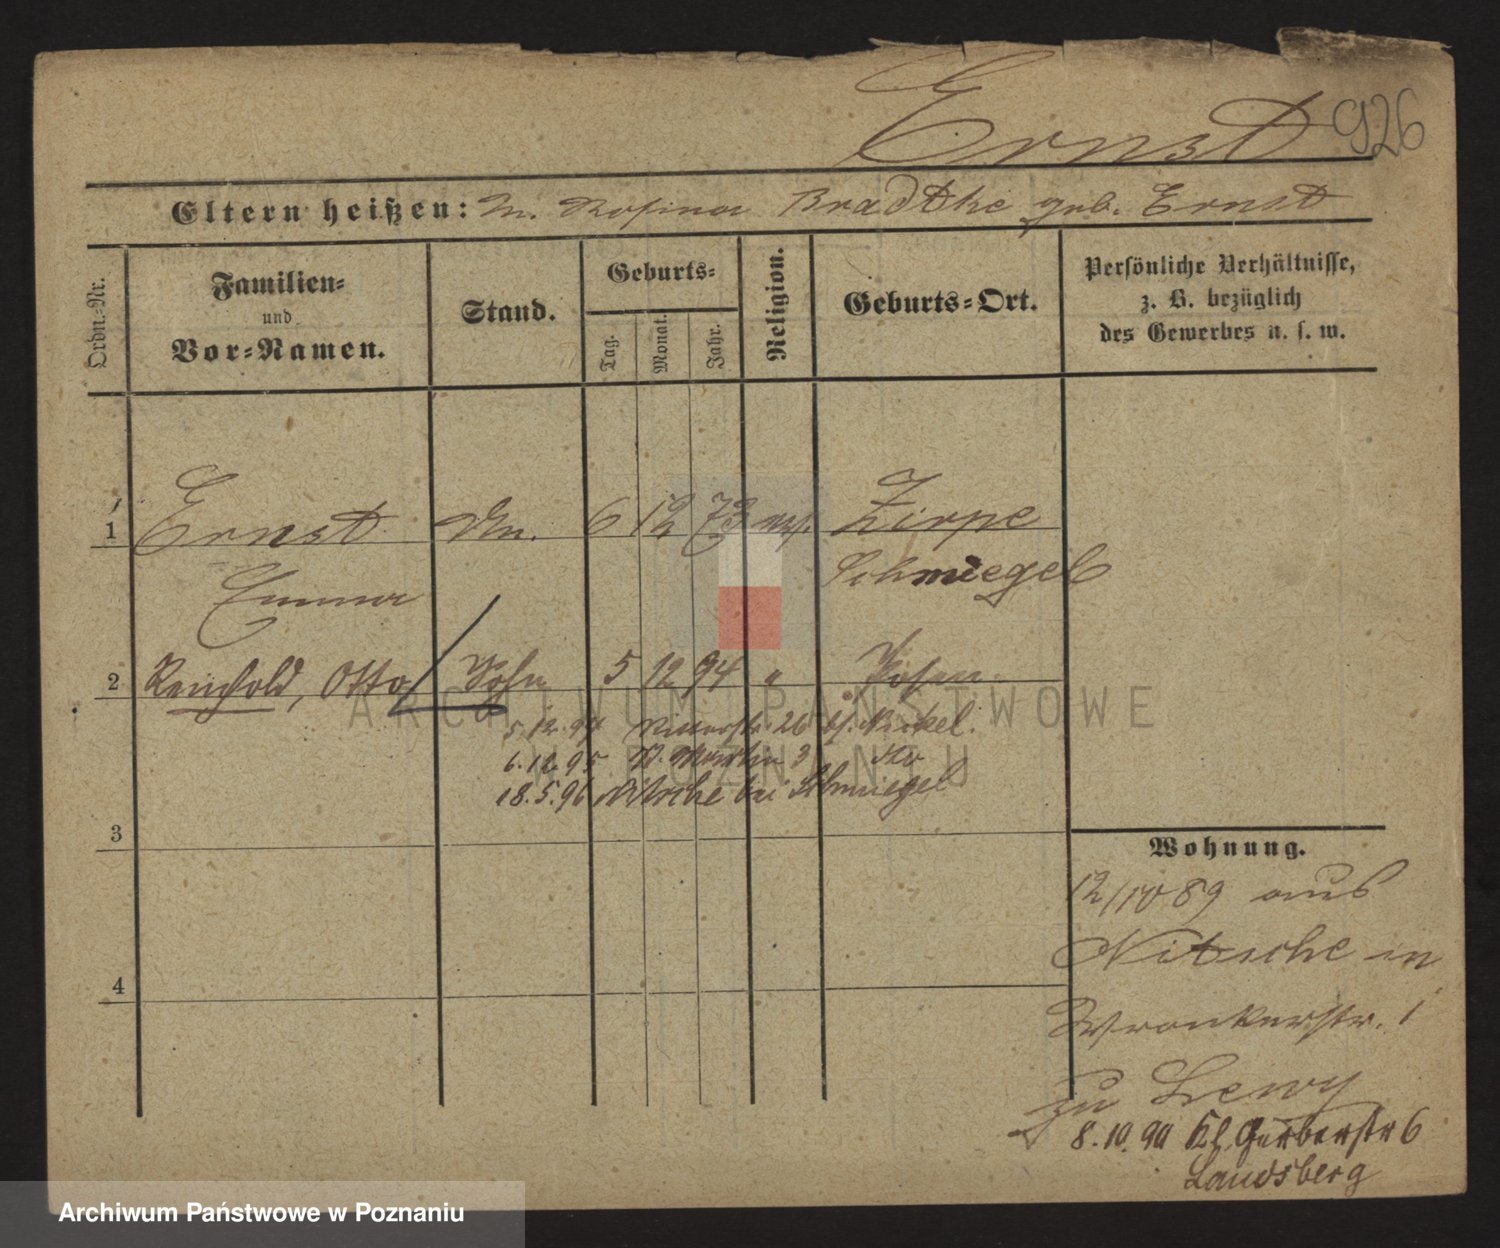 Ernst 926
Eltern heißen: M. Rosina Bradtke geb. Ernst
Ordn.-Nr.
Familien-
und
Vor-Namen.
Stand.
Geburts-
Tag.
Monat.
Jahr.
Religion.
Geburts-Ort.
Persönliche Verhältnisse,
z. B. bezüglich
des Gewerbes u. s. w.
1 Ernst 6 12 73 Zirpe
Emma Schmiegel
2 Reinhold, Otto Sohn 5 12 94 " Posen
5.12.94 Ritterstr. 26 b/. Nickel.
6.12.95 St. Martin 3 dto
18.5.96 Nitsche bei Schmiegel
3
4
Wohnung.
12/10 89 aus
Nitsche in
Wronkerstr. 1
zu Lewy
8.10.90 Kl. Gerberstr 6
Landsberg
ARCHIWUM PAŃSTWOWE
W POZNANIU
Archiwum Państwowe w Poznaniu